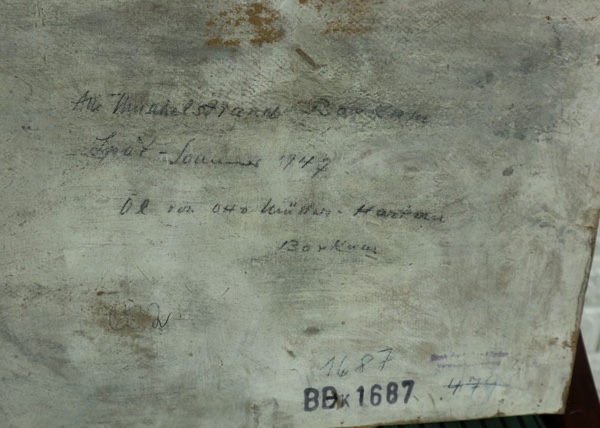 Am Muschelstrand Borkum
Spät-Sommer 1947
Öl von Otto Müller-Hartau
Borkum
1687
BBK 1687
474